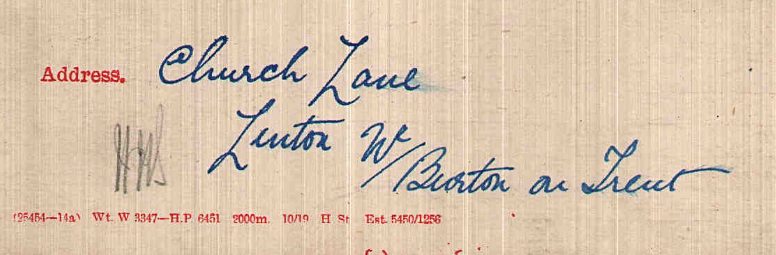 Address. Church Lane
Linton W/
Burton on Trent
(25454—14a) Wt. W 3347—H.P 6451 2000m. 10/19 H St Est. 5450/1256